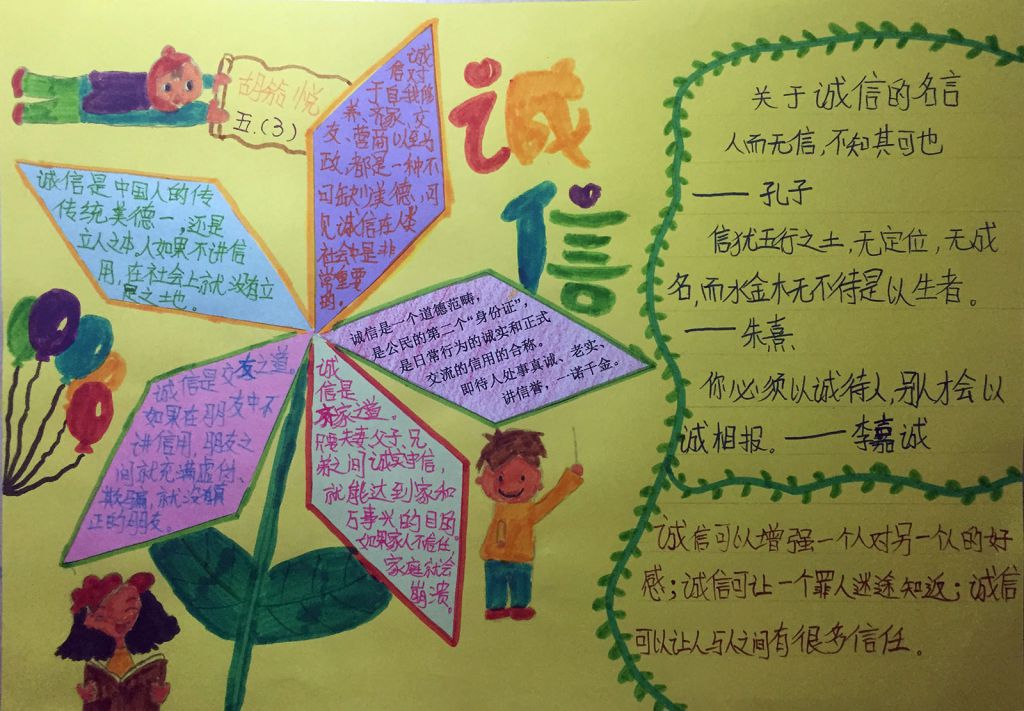 胡 悦
五.(3)
诚信
诚
信对
于自我修
养、齐家、交
友、营商以至为
政,都是一种不
可缺少美德,可
见诚信在人类
社会中是非
常重要
的。
诚信是中国人的传
传统美德一,还是
立人之本。人如果不讲信
用,在社会上就没有立
足之地。
诚信是一个道德范畴,
是公民的第二个“身份证”,
是日常行为的诚实和正式
交流的信用的合称。
即待人处事真诚、老实、
讲信誉,一诺千金。
诚信是交友之道。
如果在朋友中不
讲信用,朋友之
间就充满虚伪、
欺骗,就没有真
正的朋友。
诚
信是
齐家之道。
夫妻、父子、兄
弟之间诚实守信,
就能达到家和
万事兴的目的。
如果家人不信任,
家庭就会
崩溃。
关于诚信的名言
人而无信,不知其可也
——孔子
信犹五行之土,无定位,无成
名,而水金木无不待是以生者。
——朱熹
你必须以诚待人,别人才会以
诚相报。——李嘉诚
诚信可以增强一个人对另一个人的好
感;诚信可让一个罪人迷途知返;诚信
可以让人与人之间有很多信任。